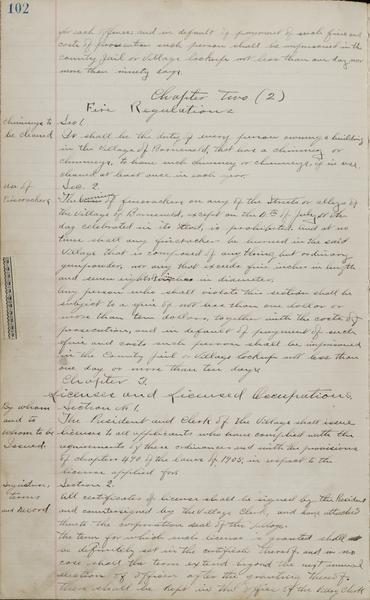 102
for each offense and in default of payment of such fine and
costs of prosecution such person shall be imprisoned in the
County Jail or Village lockup not less than one day nor
more than ninety days.
Chapter Two (2)
Fire Regulations
Chimneys to
be cleaned
Sec 1.
It shall be the duty of every person owning a building
in the Village of Barneveld, that has a chimney or
chimneys, to have such chimney or chimneys, if in use,
cleaned at least once in each year.
Use of
Firecrackers
Sec. 2.
The burning of firecrackers on any of the Streets or alleys of
the Village of Barneveld, except on the 4th of July or the
day celebrated in its stead, is prohibited and at no
time shall any firecracker be burned in the said
Village that is composed of any thing but ordinary
gunpowder, nor any that exceeds five inches in length
and seven eighths inches in diameter.
Any person who shall violate this section shall be
subject to a fine of not less than one dollar or
more than ten dollars, together with the costs of
prosecution, and in default of payment of such
fine and costs such person shall be imprisoned
in the County Jail or Village lockup not less than
one day or more than ten days.
Chapter 3.
Licenses and Licensed Occupations.
By whom
and to
whom to be
Issued.
Section No 1.
The President and Clerk of the Village shall issue
licenses to all applicants who have complied with the
requirements of these ordinances and with the provisions
of chapter 490 of the laws of 1905, in respect to the
license applied for.
Terms
and Record
Section 2.
All certificates of license shall be signed by the President
and countersigned by the Village Clerk, and have attached
thereto the corporation seal of the village.
The term for which such license is granted shall
be definitely set in the certificate thereof and in no
case shall the term extend beyond the next annual
election of officers after the granting thereof.
There shall be kept in the office of the Village Clerk